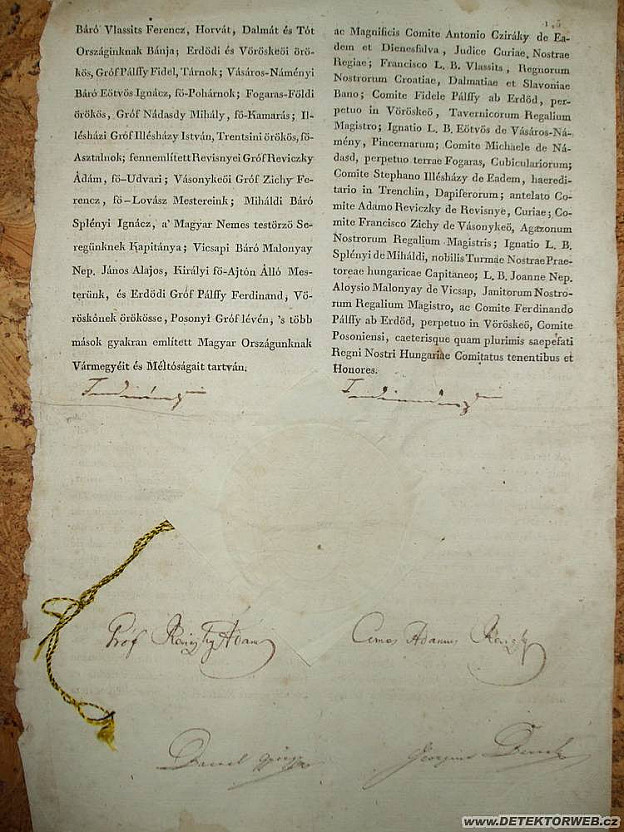 Báró Vlassits Ferencz, Horvát, Dalmát és Tót
Országinknak Bánja; Erdödi és Vöröskeöi örö-
kös, Gróf Pálffy Fidel, Tárnok; Vásáros-Naményi
Báró Eötvös Ignácz, fö-Pohárnok; Fogaras-Földi
örökös, Gróf Nádasdy Mihály, fö-Kamarás; Il-
lésházi Gróf Illésházy István, Trentsini örökös, fö-
Asztalnok; fennemlített Revisnyei Gróf Reviczky
Ádám, fö-Udvari; Vásonykeöi Gróf Zichy Fe-
rencz, fö-Lovász Mestereink; Miháldi Báró
Splényi Ignácz, a' Magyar Nemes testörzö Se-
regünknek Kapitánya; Vicsapi Báró Malonyay
Nep. János Alajos, Királyi fö-Ajtón Álló Mes-
terünk, és Erdödi Gróf Pálffy Ferdinand, Vö-
röskönek örökösse, Posonyi Gróf lévén, 's több
mások gyakran említett Magyar Országunknak
Vármegyéit és Méltóságait tartván.
ac Magnificis Comite Antonio Cziráky de Ea-
dem et Dienesfalva, Judice Curiae Nostrae
Regiae; Francisco L. B. Vlassits, Regnorum
Nostrorum Croatiae, Dalmatiae et Slavoniae
Bano; Comite Fidele Pálffy ab Erdöd, per-
petuo in Vöröskeö, Tavernicorum Regalium
Magistro; Ignatio L. B. Eötvös de Vásáros-Na-
mény, Pincernarum; Comite Michaele de Ná-
dasd, perpetuo terrae Fogaras, Cubiculariorum;
Comite Stephano Illésházy de Eadem, haeredi-
tario in Trenchin, Dapiferorum; antelato Co-
mite Adamo Reviczky de Revisnye, Curiae; Co-
mite Francisco Zichy de Vásonykeö, Agazonum
Nostrorum Regalium Magistris; Ignatio L. B.
Splényi de Miháldi, nobilis Turmae Nostrae Prae-
toreae hungaricae Capitaneo; L. B. Joanne Nep.
Aloysio Malonyay de Vicsap, Janitorum Nostro-
rum Regalium Magistro, ac Comite Ferdinando
Pálffy ab Erdöd, perpetuo in Vöröskeö, Comite
Posoniensi, caeterisque quam plurimis saepefati
Regni Nostri Hungariae Comitatus tenentibus et
Honores.
Gróf Reviczky Ádám
Comes Adamus Reviczky
György
Georgius
www.DETEKTORWEB.cz